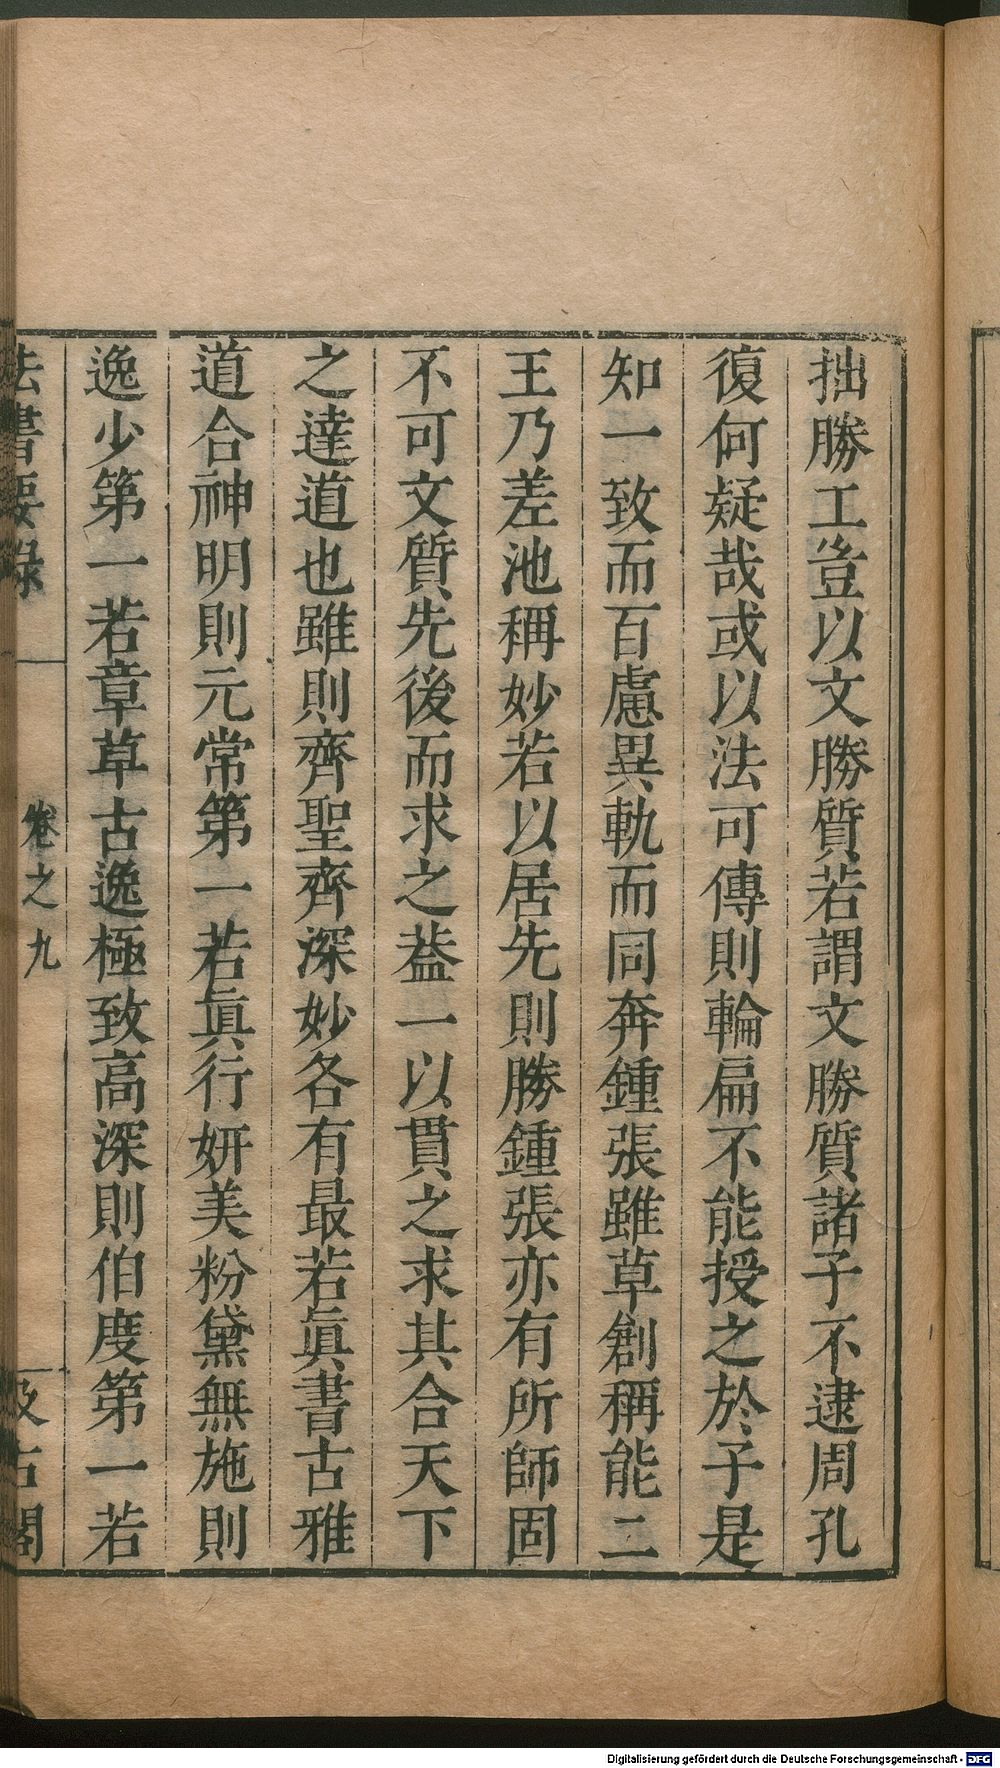 拙勝工豈以文勝質若謂文勝質諸子不逮周孔
復何疑哉或以法可傳則輪扁不能授之於子是
知一致而百慮異軌而同奔鍾張雖草創稱能二
王乃差池稱妙若以居先則勝鍾張亦有所師固
不可文質先後而求之葢一以貫之求其合天下
之達道也雖則齊聖齊深妙各有最若眞書古雅
道合神明則元常第一若眞行妍美粉黛無施則
逸少第一若章草古逸極致高深則伯度第一若
法書要錄
卷之九
汲古閣
Digitalisierung gefördert durch die Deutsche Forschungsgemeinschaft - DFG